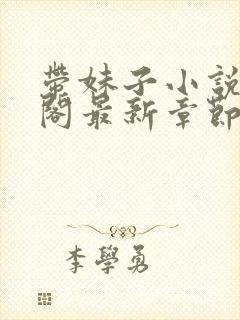 帶妹子小說
閣最新章節
李學勇